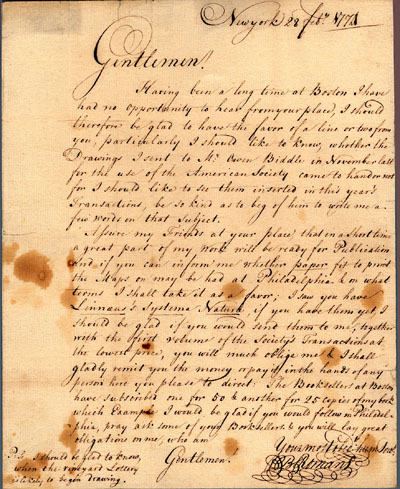 New york 28 feb.y 1774
Gentlemen!
Having been a long time at Boston I have
had no opportunity to hear from your place, I should
therefore be glad to have the favor of a line or two from
you, particularly I should like to know, whether the
Drawings I sent, to Mr. Owen Biddle in November last
for the use of the American Society came to hand or not
for I should like to see them inserted in this year's
Transactions, be so kind as to beg of him to write me a
few words on that Subject.
Assure my Friends at your place that in a Short time
a great part of my Work will be ready for Publication
and if you can inform me whether paper fit to print
the Maps on may be had at Philadelphia & on what
terms I shall take it as a favor; I saw you have
Linnaus's Systema Natura, if you have them yet, I
should be glad if you would send them to me, together
with the first volume of the Society's Transactions at
the lowest price, you will much oblige me & I shall
gladly remit you the money or pay it in the hands of any
person here you please to direct. The Booksellers at Boston
have subscribed one for 50 & another for 25 copies of my book
which Example I would be glad if you would follow in Philadel-
phia, pray ask some of your Booksellers & you will lay great
obligations on me, who am
Gentlemen!
Your most hum Serv.t
PS. I should be glad to know,
when the vineyard Lottery
is likely to begin drawing.